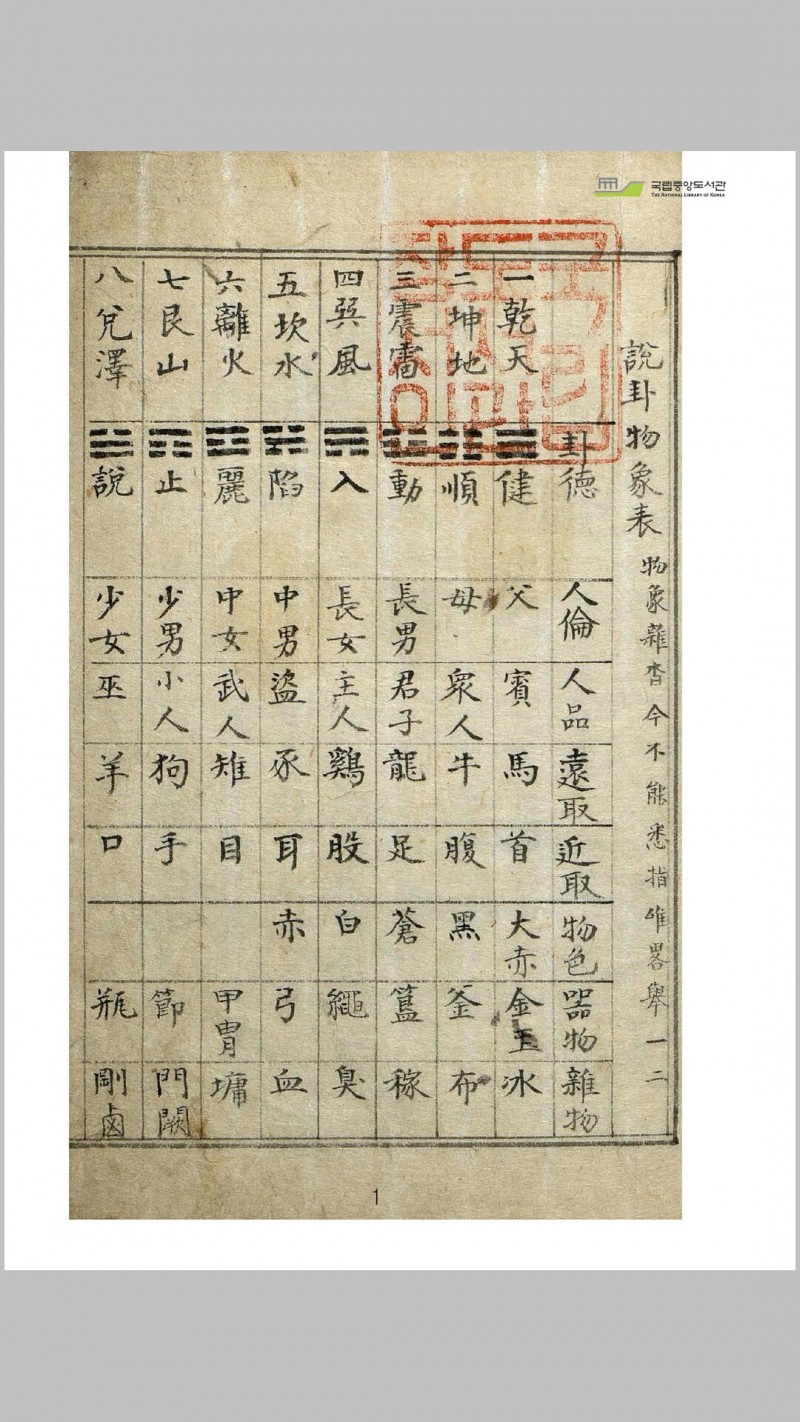 국립중앙도서관
THE NATIONAL LIBRARY OF KOREA
說卦物象表 物象雜沓今不能悉指唯畧舉一二
卦德 人倫 人品 遠取 近取 物色 器物 雜物
一乾天 ☰ 健 父 賓 馬 首 大赤 金玉 冰
二坤地 ☷ 順 母 衆人 牛 腹 黑 釜 布
三震雷 ☳ 動 長男 君子 龍 足 蒼 簋 稼
四巽風 ☴ 入 長女 主人 鷄 股 白 繩 臭
五坎水 ☵ 陷 中男 盜 豕 耳 赤 弓 血
六離火 ☲ 麗 中女 武人 雉 目 甲冑 墉
七艮山 ☶ 止 少男 小人 狗 手 節 門闕
八兌澤 ☱ 說 少女 巫 羊 口 甁 剛鹵
1